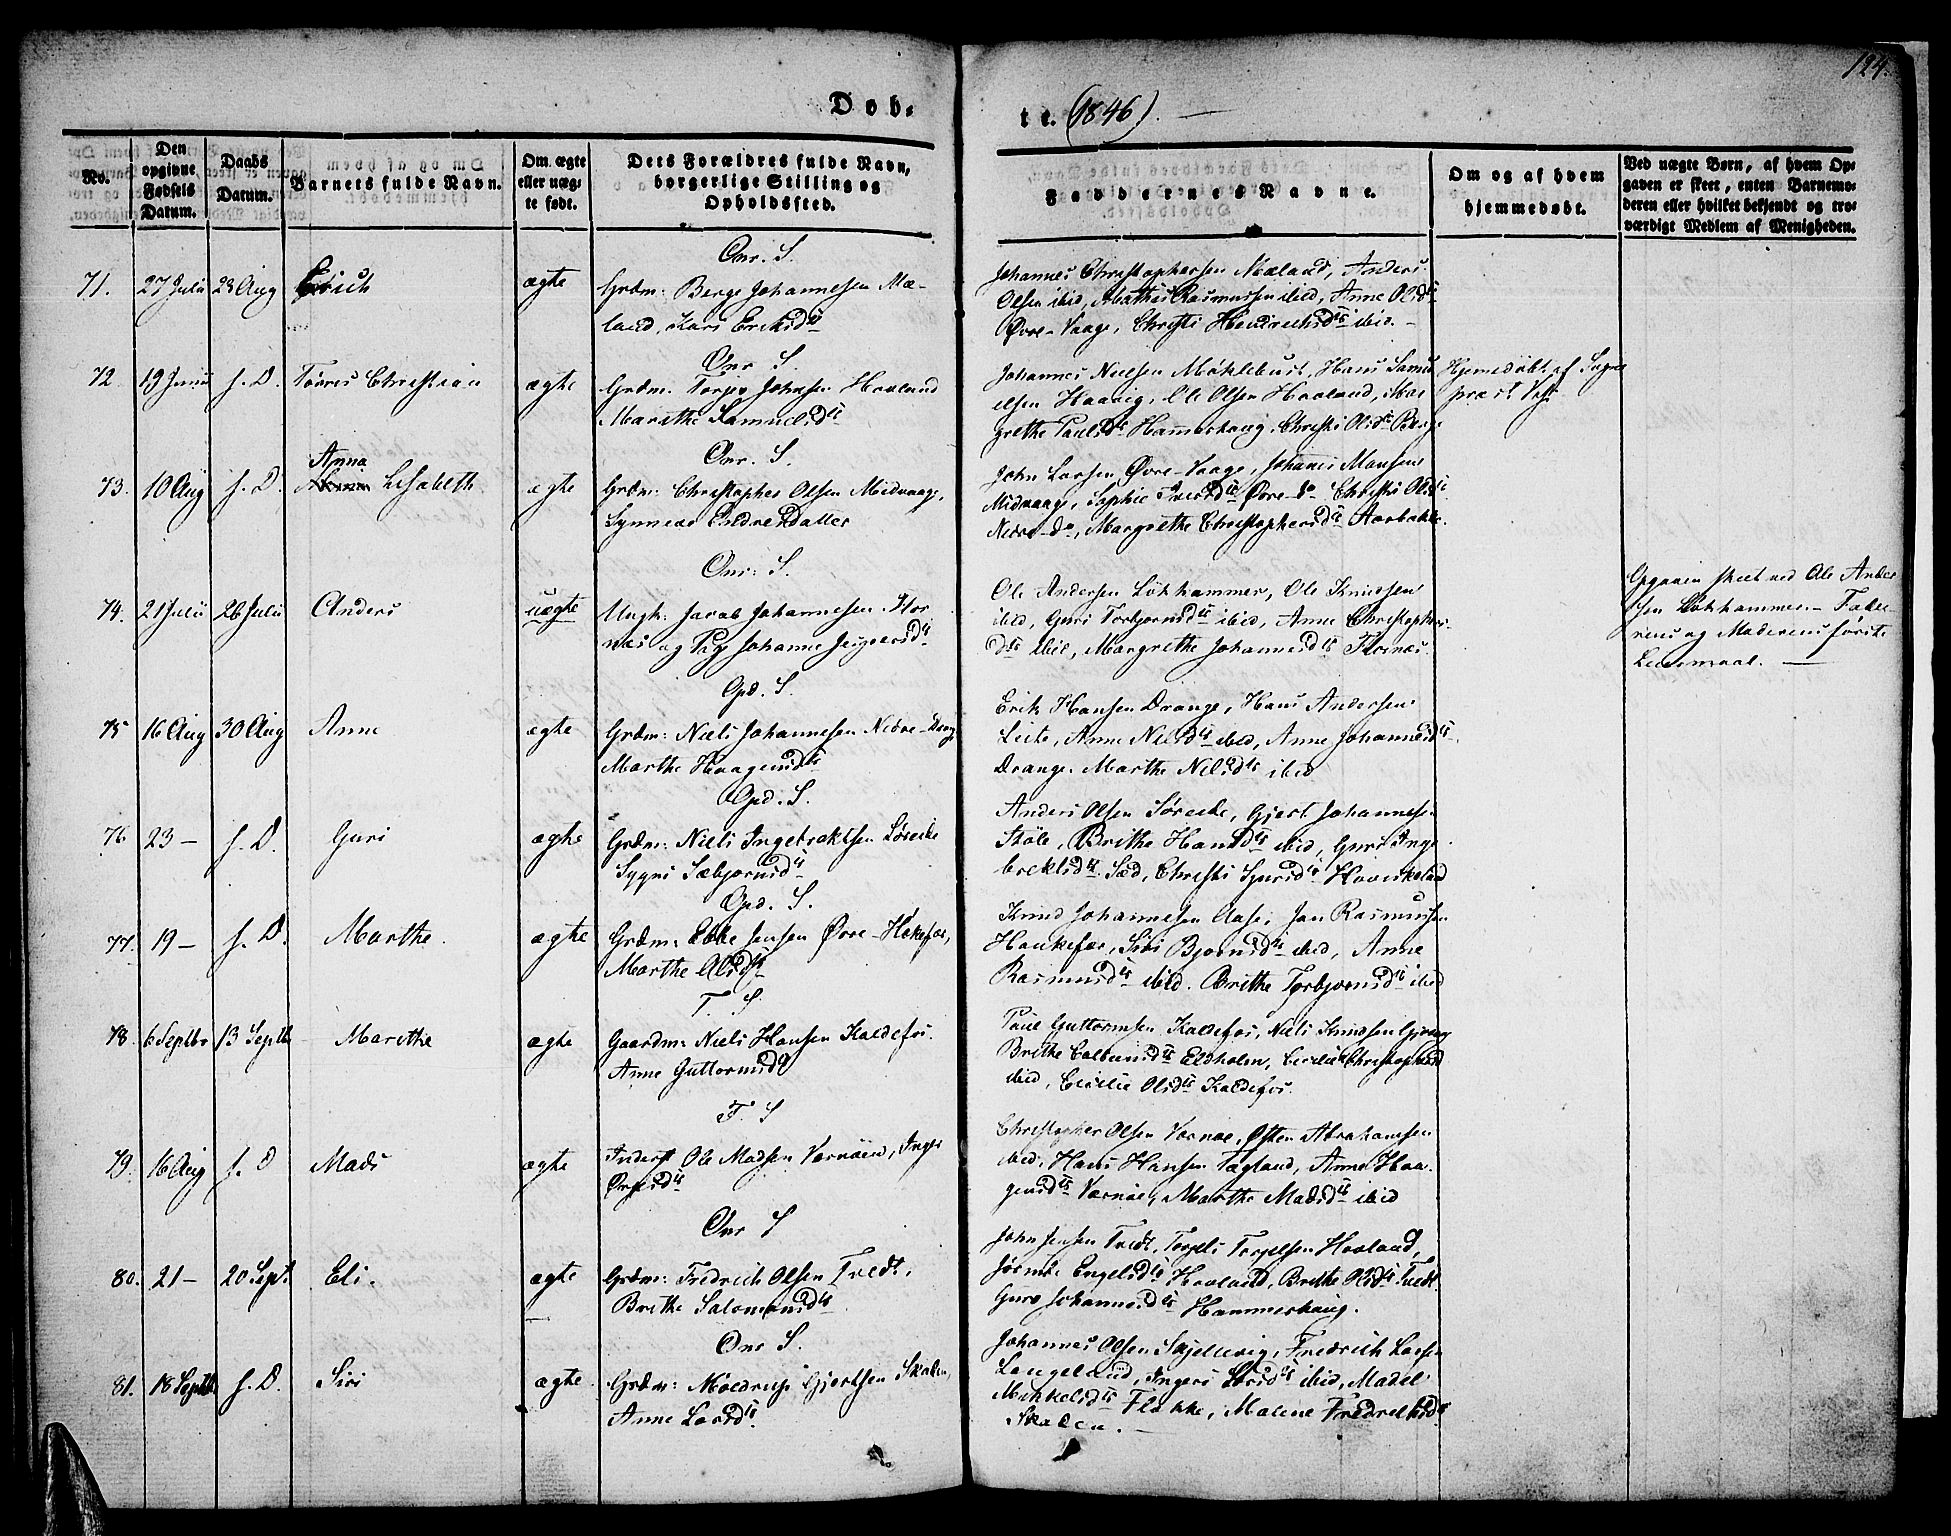 124.
Døb-
te. (1846). —
No.
Den opgivne Fødsels Datum.
Daabs Datum.
Barnets fulde Navn.
Om ægte eller uægte født.
Dets Forældres fulde Navn, borgerlige Stilling og Opholdssted.
Faddernes Navne.
Om og af hvem hjemmedøbt.
Ved uægte Børn, af hvem Opgaven er skeet, enten Barnemoderen eller hvilket bekjendt og troværdigt Medlem af Menigheden.
Onr. S.
71. 27 Julii 23 Aug Erich ægte Grdm: Berge Johannesen Mæ-
land, Kari Eriksdtr
Johannes Christophersen Mæland, Anders
Olsen ibid, Mathis Rasmussen ibid, Anne Olsdtr
Øvre-Vaage, Christi Hendrichsdtr ibid. -
Onr S.
72. 19 Junii s. D. Tørres Christian ægte Grdm: Torjer Johnsen Haaland
Marithe Samuelsdtr
Johannes Nielsen Møkleburst, Hans Samu
elsen Haavig, Ole Olsen Haaland, Mar
grethe Paulsdtr Hammerhaug, Christi Olsdtr Berge
Hjemedøbt af Sogne
præst
Onr. S.
73. 10 Aug s. D. Anna Lisabeth ægte Grdm: Christopher Olsen Midvaage,
Synneve Endredatter
John Larsen Øvre-Vaage, Johanes Monsen
Midvaage, Sophie Iversdtr Øvre-do Christi Olsdtr
Nedre-do, Margrethe Christophersdtr Aarbakke.
Onr: S.
74. 21 Julii 26 Julii Anders uægte Ungk: Jacob Johannesen Flor
næs og Pig Johanne
Ole Andersen Løkhammer, Ole Knudsen
ibid, Guri Torbjørnsdtr ibid, Anne Christopher-
sdtr ibid, Margrethe Johannesdtr Flornæs.
Opgaven skeet ved Ole Ander
sen Løkhammer. — Fade-
rens og Moderens første
Leiermaal. —
Opd. S.
75 16 Aug 30 Aug Anne ægte Grdm: Niels Johannesen Nedre-Drange
Marthe Haagensdtr
Erik Hansen Drange, Hans Andersen
Leite, Anne Nielsdtr ibid, Anne Johannesdtr
Drange. Marthe Nilsdtr ibid
Opd. S.
76 23 — s. D. Guri ægte Grdm: Niels Ingebrektsen Søreide
Sygni Sæbjørnsdtr
Anders Olsen Søreide, Gjert Johannesen
Støle, Brithe Hansdtr ibid, Guri Inge
brektsdtr Sæd, Christi Sjursdtr
Opd. S.
77. 19 — s. D. Marthe. ægte Grdm: Ebbe Jensen Øvre-Hekefær,
Marthe Olsdtr
Knud Johannesen Aase, Jan Rasmussen
Haukefær, Siri Bjørnsdtr ibid, Anne
Rasmusdtr ibid. Brithe Torbjørnsdtr ibid
T. S.
78. 6 Septbr 13 Septb Marithe ægte Gaardm: Niels Hansen Kaldefos.
Anne Guttormsdtr
Paul Guttormsen Kaldefos, Niels Knudsen
Brithe Eldholm, Cecilie Christophersdtr
ibid, Cecilie Olsdtr Kaldefos.
T. S
79. 16 Aug s. D Mads ægte Inderst Ole Madsen Værnøen, Inger
Christopher Olsen Værnøe, Østen Abrahamsen
ibid, Hans Hansen Tøgland, Anne Haa-
gensdtr Værnøe, Marthe Madsdtr ibid
Onr S
80. 21 — 20 Sept. Eli. ægte Grdm: Fredrich Olsen Tvedt,
Brithe Salomonsdtr
John Jensen Tvedt, Torjels Torjelsen Haaland,
Engelsdtr Haaland, Brithe Olsdtr Tvedt
Guro Johannesdtr Hammerhaug.
Onr S.
81. 18 Septbr s. D. Siri ægte. Grdm: Møldrup Gjertsen Skaalen,
Anne Larsdtr
Johannes Olsen Skjellevig, Fredrich Larsen
Langeland, Ingeri Larsdtr ibid, Madel
Mikkelsdtr Flakke, Malene Fredrichsdtr
Skaalen. —